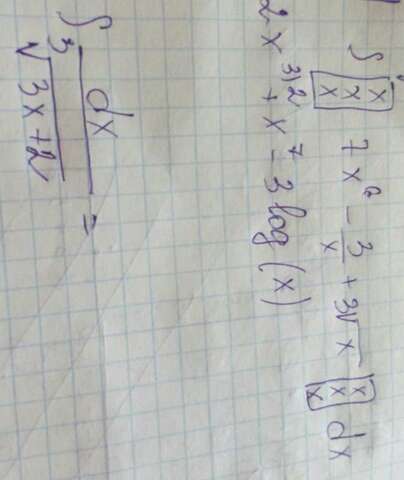 ∫ [x x x] 7x⁶ - 3/x + 3√x [x x x] dx
2x^3/2 + x⁷ - 3 log(x)
∫ dx/∛(3x+2) =